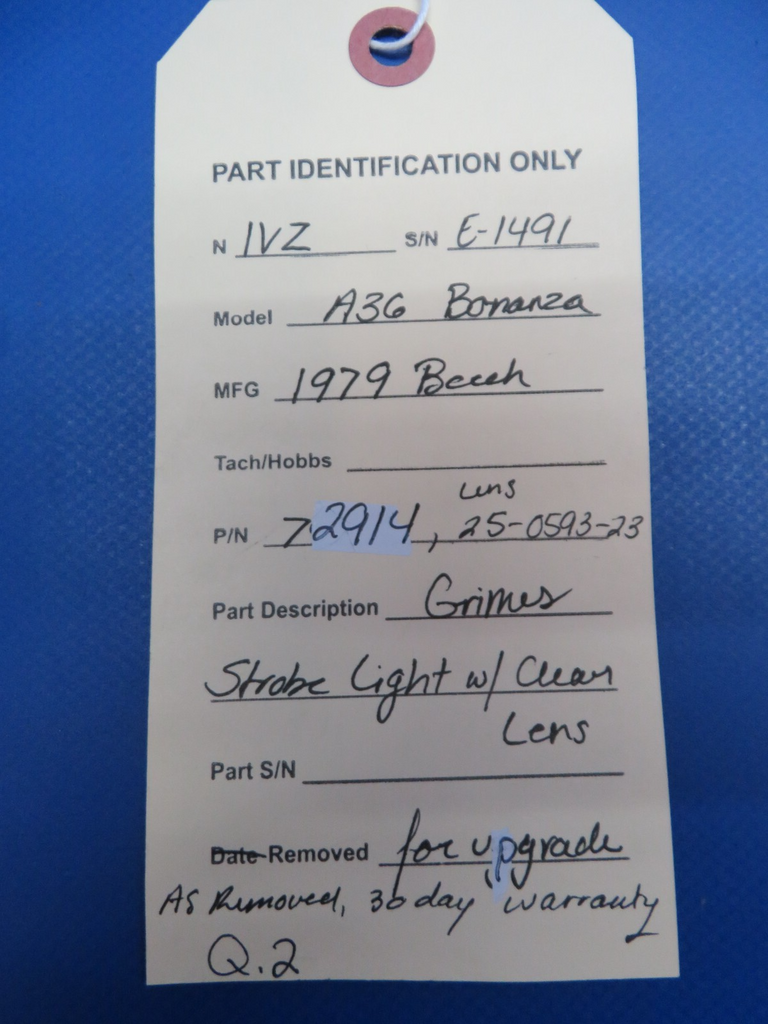 PART IDENTIFICATION ONLY
N 1VZ S/N E-1491
Model A36 Bonanza
MFG 1979 Beech
Tach/Hobbs
Lens
P/N 72914, 25-0593-23
Part Description Grimes
Strobe Light w/ Clear
Lens
Part S/N
Date Removed for upgrade
As Removed, 30 day warranty
Q.2